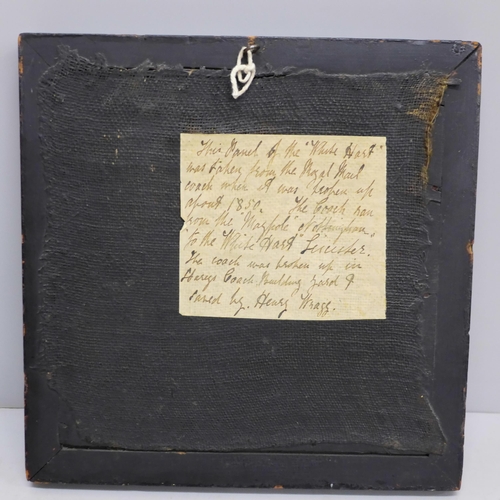 This Panel of the "White Hart"
was taken from the Royal Mail
coach when it was broken up
about 1850. The Coach ran
from the Maypole Nottingham,
to the "White Hart" Leicester.
The coach was broken up in
Coach Building yard &
saved by. Henry Wragg.